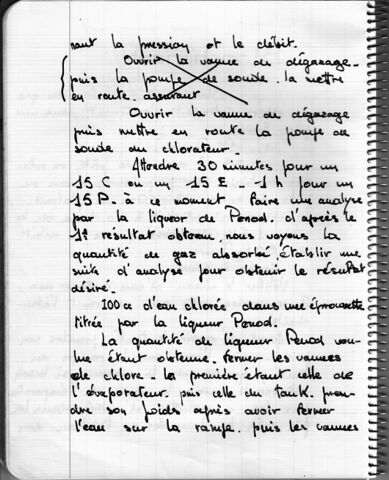 nant la pression et le débit.
Ouvrir la vanne du dégazage.
puis la pompe de soude. la mettre
en route. assurant
Ouvrir la vanne du dégazage
puis mettre en route la pompe de
soude du chlorateur.
Attendre 30 minutes pour un
15 C ou un 15 E - 1 h pour un
15 P. à ce moment. Faire une analyse
par la liqueur de Penod. d'après le
1er résultat obtenu. nous voyons la
quantité de gaz absorbé établir une
suite d'analyse pour obtenir le résultat
désiré.
100 cc d'eau chlorée dans une éprouvette
titrée par la liqueur Penod.
La quantité de liqueur Penod vou-
lue étant obtenue. fermer les vannes
de chlore. la première étant celle de
l'évaporateur. puis celle du tank. pren-
dre son poids après avoir fermer
l'eau sur la rampe. puis les vannes